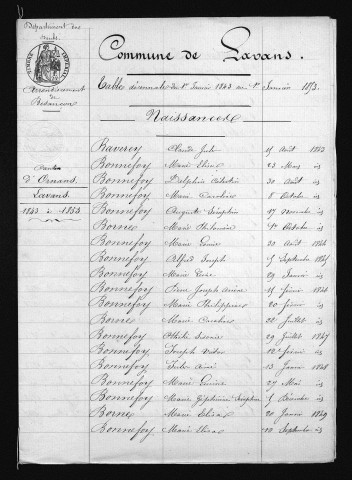 Département du
Doubs
Arrondissement
de
Besançon
Canton
d'Ornans
Lavans
1843 à 1853
Commune de Lavans.
Table décennale du 1er Janvier 1843 au 1er Janvier 1853.
Naissances
Ravercy Claude Jules 15 Août 1843
Bonnefoy Marie 23 Mars id
Bonnefoy Delphin Célestin 30 Août id
Bonnefoy Marie Caroline 8 Octobre id
Bonnefoy Auguste 17 Novembre id
Borne Marie Philomène Octobre id
Bonnefoy Marie 30 Août 1844
Bonnefoy Alfred Joseph 15 Septembre
Bonnefoy Marie 29 Janvier id
Bonnefoy Joseph 15 février
Bonnefoy Marie Philippine 20 février id
Borne Marie 22 Juillet id
Bonnefoy 29 Juillet 1847
Bonnefoy Joseph 12 février id
Bonnefoy Jules 13 Janvier 1848
Bonnefoy Marie 27 Mai id
Bonnefoy Marie Joséphine Décembre id
Borne Marie Elisa 20 Janvier 1849
Bonnefoy Marie Septembre id